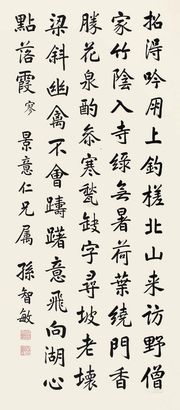 招得吟朋上釣槎北山來訪野僧
家竹陰入寺綠無暑荷葉繞門香
勝花泉酌叅寒甃缺字尋坡老壞
梁斜幽禽不會躊躇意飛向湖心
點落霞 寥 景意仁兄屬 孫智敏